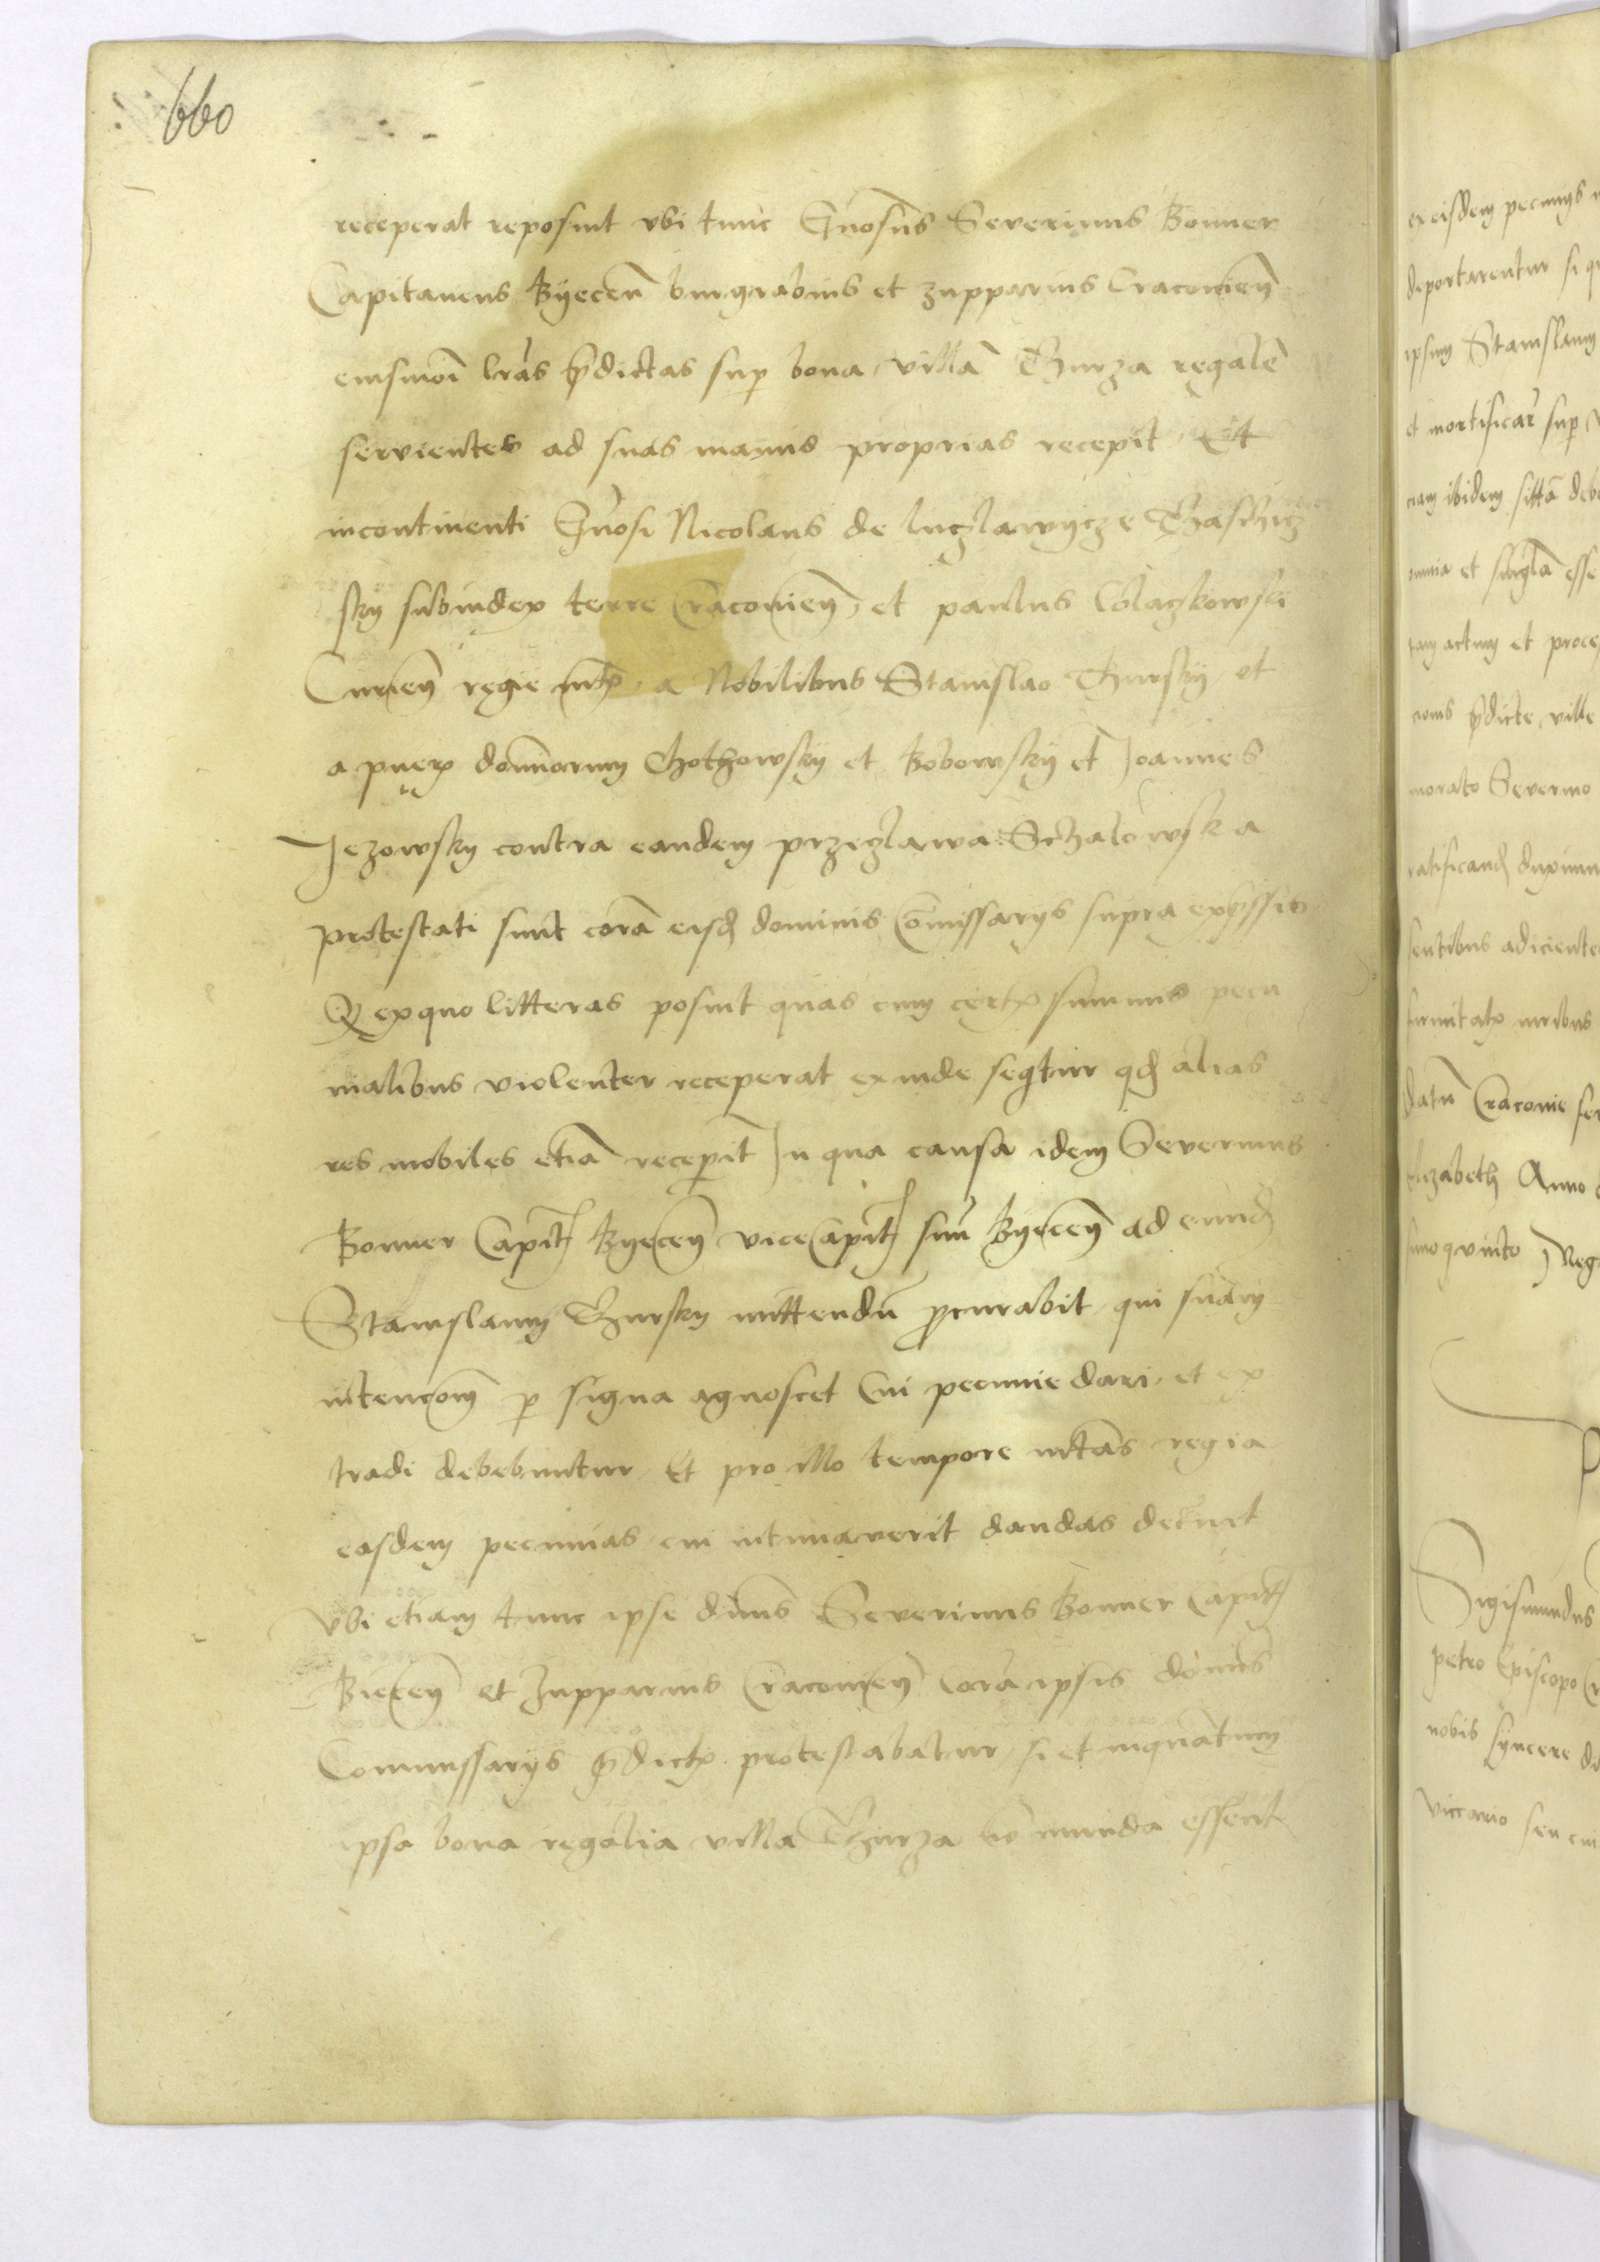 660
receperat reposuit ubi tunc Gnosus Severinus Bonner
Capitaneus Byecen burgrabius et zupparius Cracovien
eiusmoi lras pdictas sup bona villa Thurza regale
servientes ad suas manus proprias recepit Et
incontinenti Gnosi Nicolaus de luczlawycze Thaschicz
sky subiudex terre Cracovien et paulus Colaczkowski
Curien regie a Nobilibus Stanislao Thursky et
a puerp dominorum Chothowsky et Bobowsky et Joannes
Jezowsky contra eandem przeczlawa Schalowska
protestati sunt cora eisd dominis Comissarys supra expssis
Q exquo litteras posuit quas cum certis summis pecu
nialibus violenter receperat exinde seqtur qd alias
res mobiles etia receperit In qua causa idem Severinus
Bonner Capit Byecen viceCapit suu Byecen ad eund
Stanislaum Thursky mittendu pcurabit qui suam
intencom p signa agnoscet Cui pecunie dari et ex
tradi debebuntur Et pro illo tempore mtas regia
easdem pecunias cui intimaverit dandas decert
Ubi etiam tunc ipse dnus Severinus Bonner Capit
Biecen et Zupparius Cracovien Cora ipsis domis
Commissarys pdictis protestabatur si et inquantum
ipsa bona regalia villa Thurza munda essent
ex eisdem pecunys
deportarentur si
ipsum Stanislaum
et mortificar sup
ibidem sitta deb
omnia et singla esse
actum et proce
pdicte ville
morato Severino
ratificand duximus
sentibus adiciente
datu Cracovie fer
Elizabeth Anno
quinto Reg
Sigismundus
petro Episcopo
nobis syncere
viccario seu cui